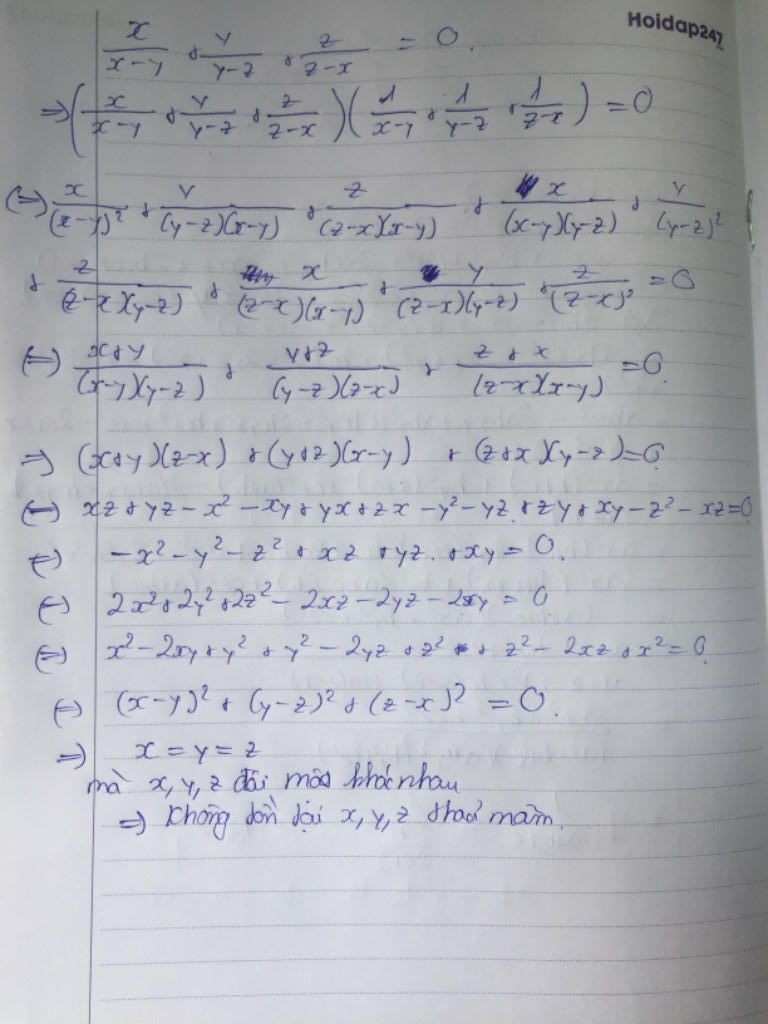 Hoidap247
x/(x-y) + y/(y-z) + z/(z-x) = 0.
=> (x/(x-y) + y/(y-z) + z/(z-x))(1/(x-y) + 1/(y-z) + 1/(z-x)) = 0
(=) x/(x-y)² + y/(y-z)(x-y) + z/(z-x)(x-y) + x/(x-y)(y-z) + y/(y-z)²
+ z/(z-x)(y-z) + x/(z-x)(x-y) + y/(z-x)(y-z) + z/(z-x)² = 0
(=) x+y/(x-y)(y-z) + y+z/(y-z)(z-x) + z+x/(z-x)(x-y) = 0.
=> (x+y)(z-x) + (y+z)(x-y) + (z+x)(y-z) = 0
(=) xz + yz - x² - xy + yx + zx - y² - yz + zy + xy - z² - xz = 0
(=) -x² - y² - z² + xz + yz + xy = 0.
(=) 2x² + 2y² + 2z² - 2xz - 2yz - 2xy = 0
(=) x² - 2xy + y² + y² - 2yz + z² + z² - 2xz + x² = 0
(=) (x-y)² + (y-z)² + (z-x)² = 0.
=> x = y = z
mà x, y, z đôi một khác nhau
=> Không tồn tại x, y, z thoả mãn.